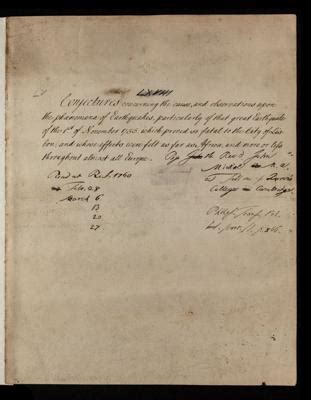 LXVIII
Conjectures concerning the cause, and observations upon
the phænomena of Earthquakes, particularly of that great Earthquake
of the 1st of November 1755. which proved so fatal to the City of Lis-
bon; and whose effects were felt as far as Africa, and more or less
throughout almost all Europe. By the Revd. John
Michell M. A.
Fellow of Queen's
College Cambridge
Read at R. S. 1760
Feb. 28
March 6
13
20
27
Philos. Trans. Vol.